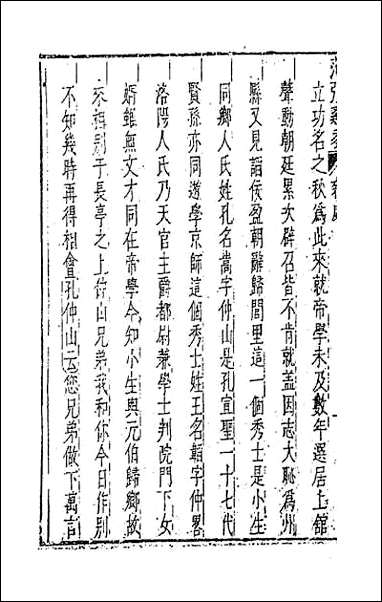 范張雞黍
立功名之秋為此來就帝學未及數年選居上舘
聲動朝廷累次辟召皆不肯就盖因志大恥為州
縣又見諂侫盈朝辭歸閭里這一個秀士是小生
同鄉人氏姓孔名嵩字仲山是孔宣聖一十七代
賢孫亦同遊學京師這個秀士姓王名韜字仲畧
洛陽人氏乃天官主爵都尉兼學士判院門下女
婿雖無文才同在帝學今知小生與元伯歸鄉故
來相别于長亭之上仲山兄弟我和你今日作别
不知幾時再得相會孔仲山云您兄弟做下萬言